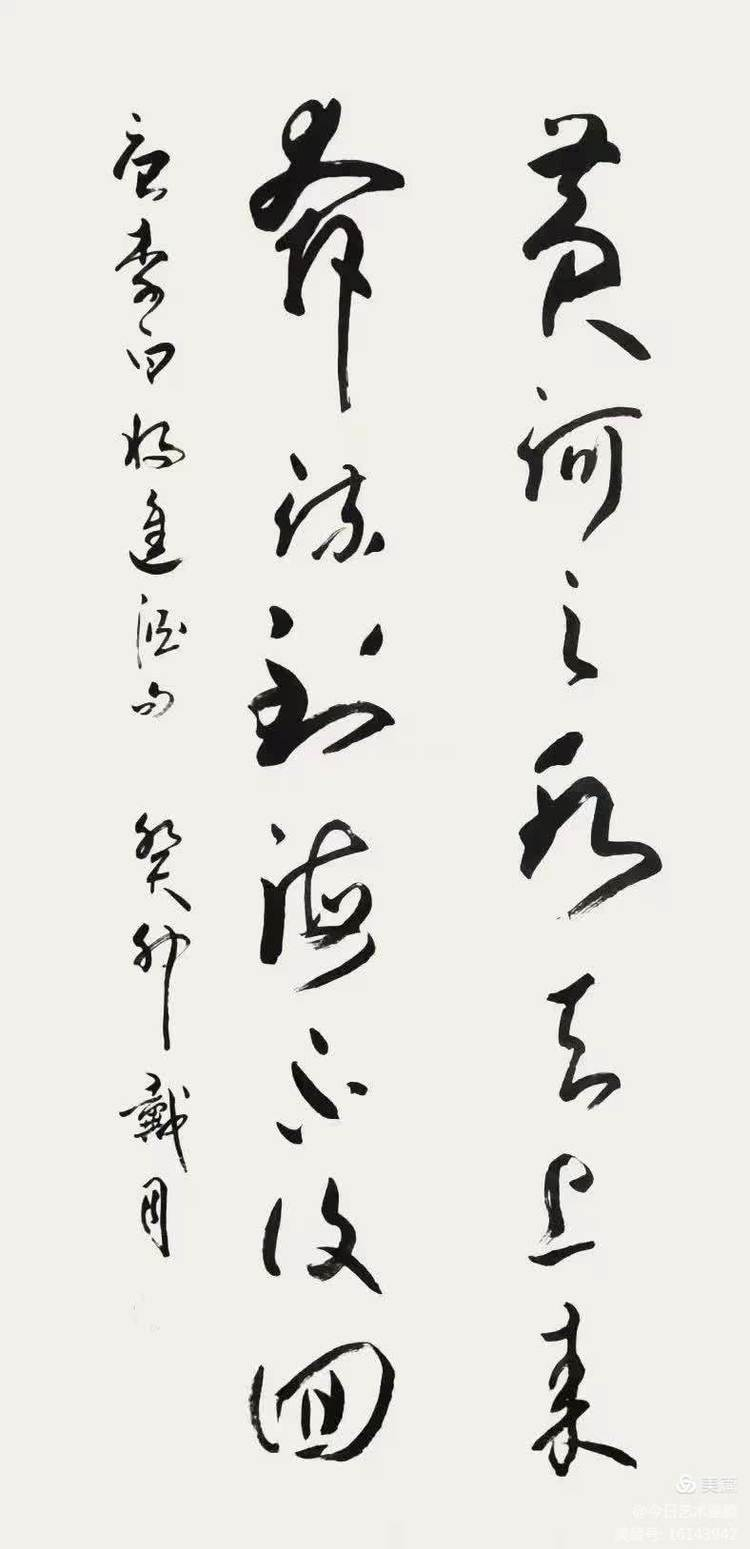 黄河之水天上来
奔流到海不复回
唐李白将進酒句 癸卯 戴月
美篇
@今日艺术
美篇号:16143942